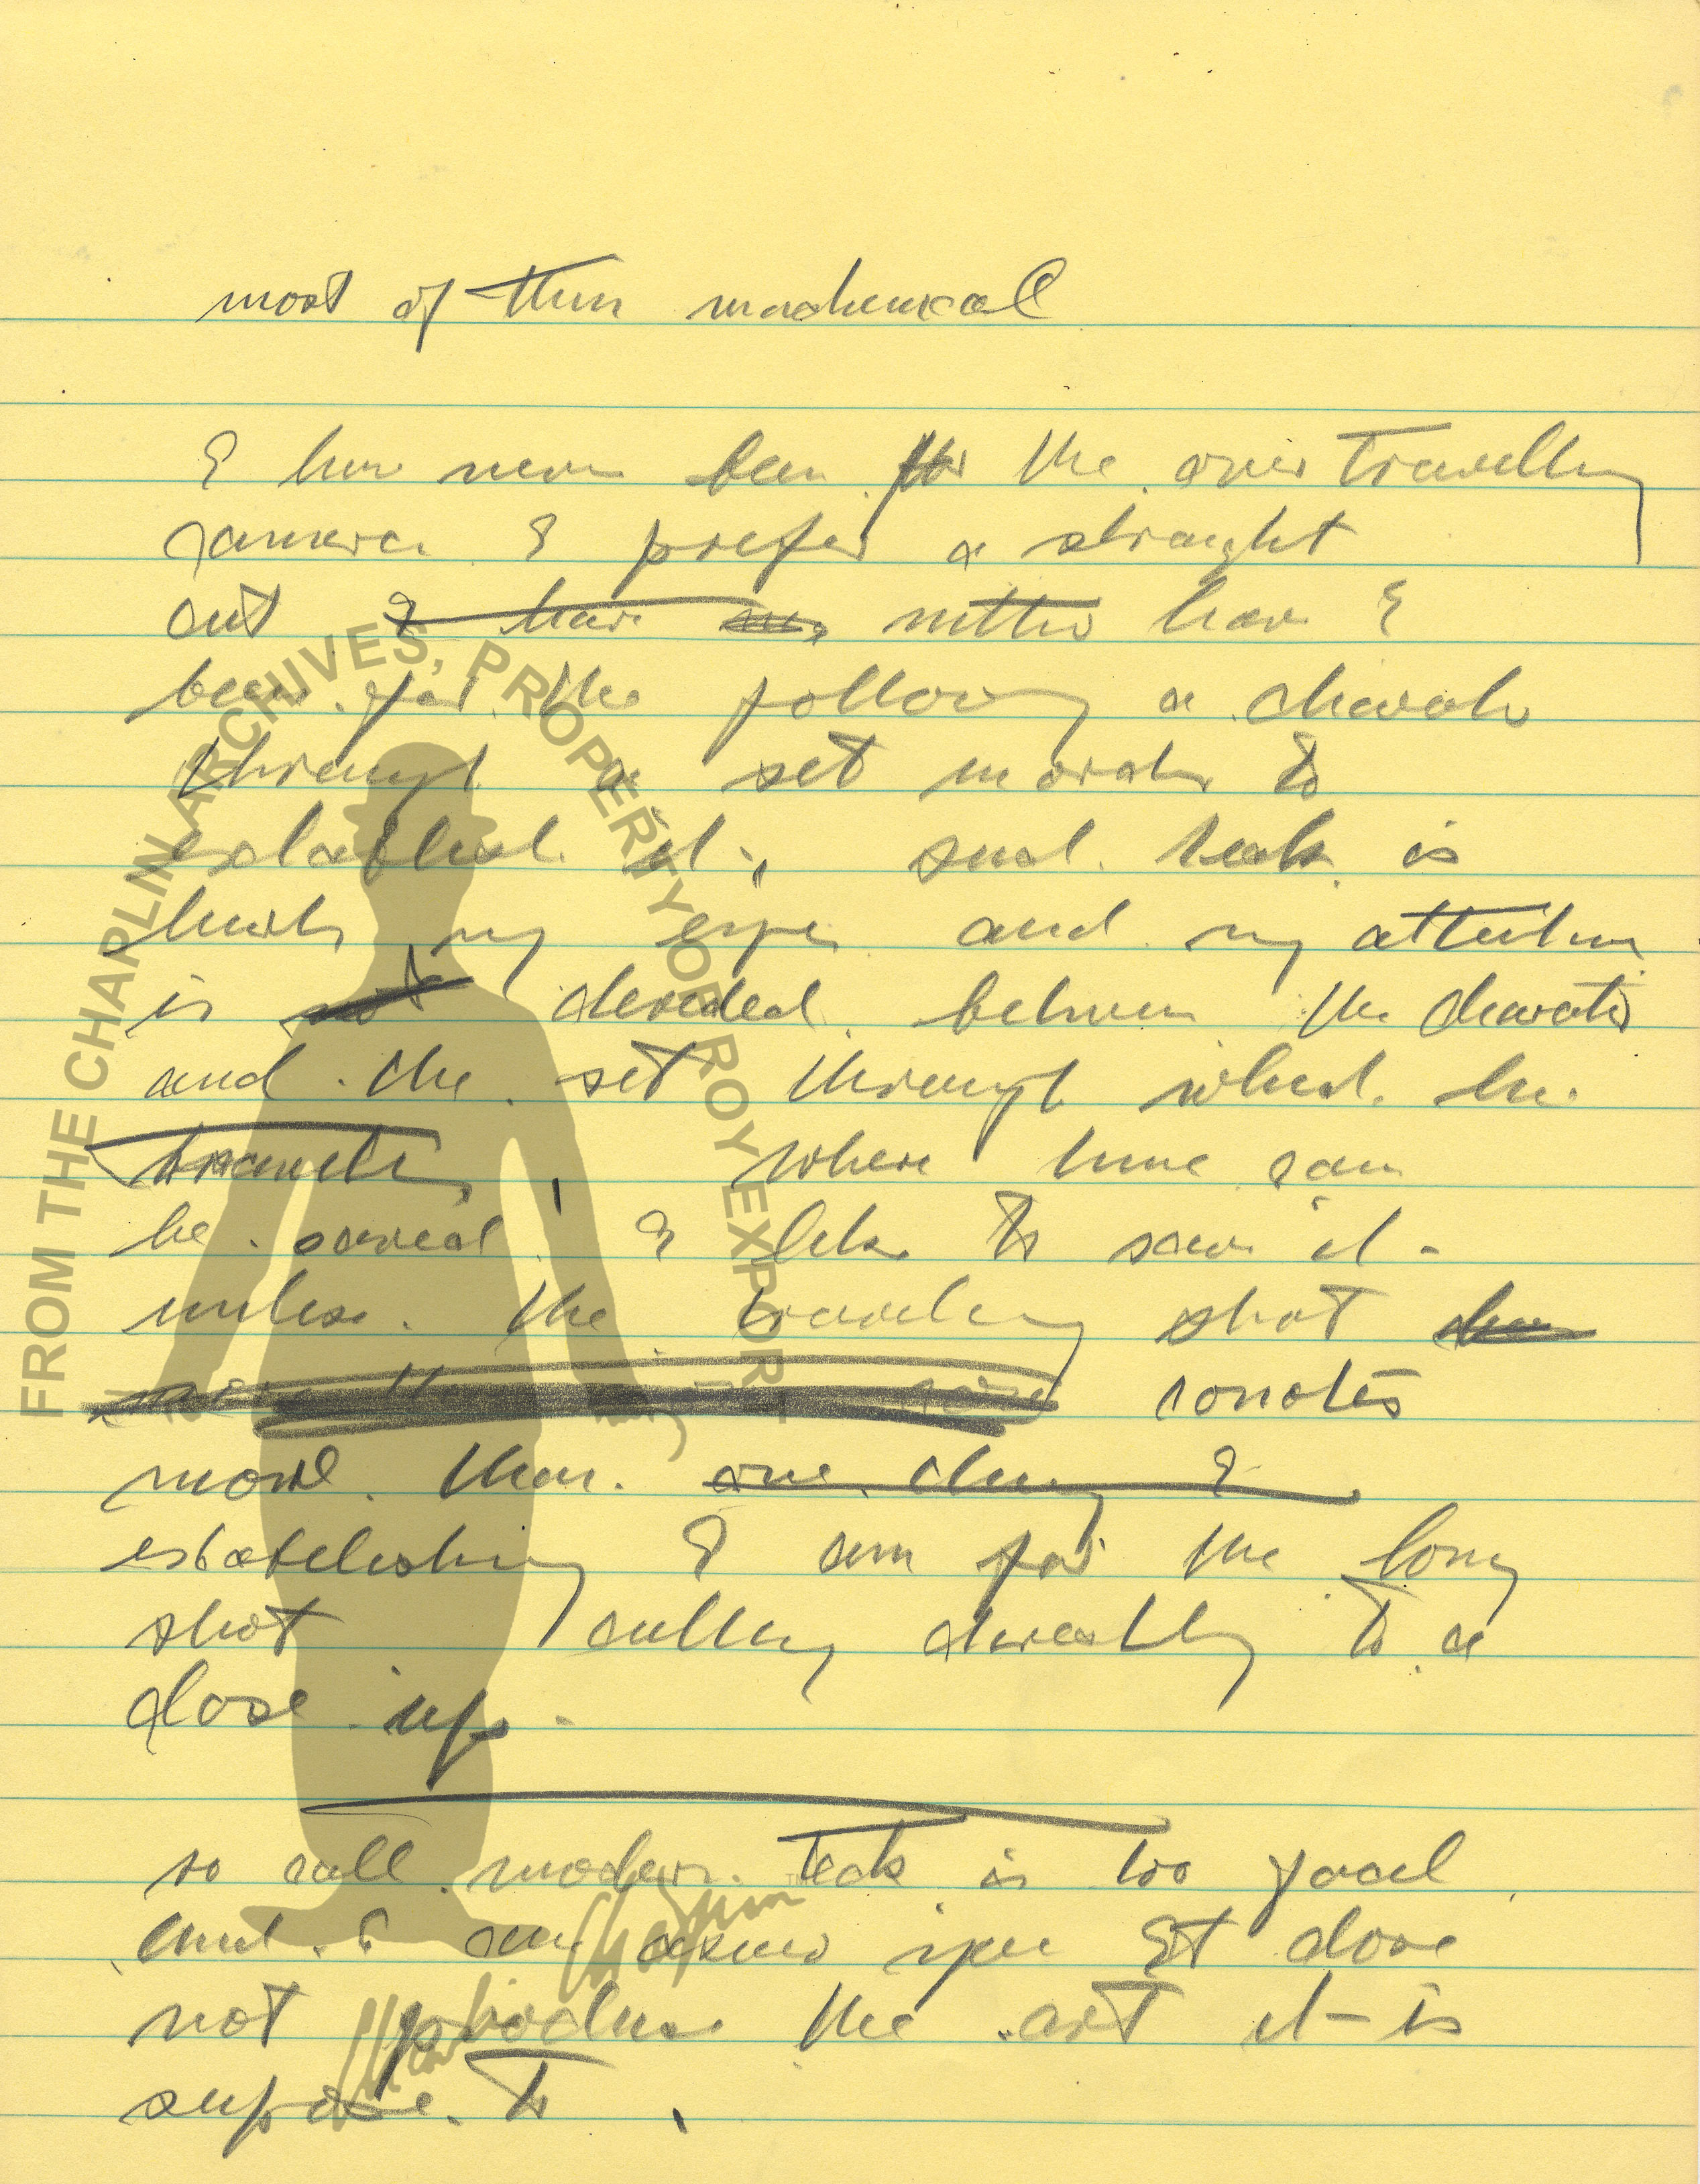 most of them mechanical
I have never been for the over travelling
camera I prefer a straight
cut I have nether have I
been for the following a charater
through a set in order to
establish it, such tecks is
hurts my eyes and my attention
is not devided between the charater
and the set through which he
travels, where time can
be saved I like to save it -
unless the traveling shot
conotes
more than one thing I
establishing I am for the long
shot cutting directly to a
close up.
so call modern teck is too good
and I am it dose
not produce the art it is
supose to
FROM THE CHAPLIN ARCHIVES, PROPERTY OF ROY EXPORT
Charlie Chaplin